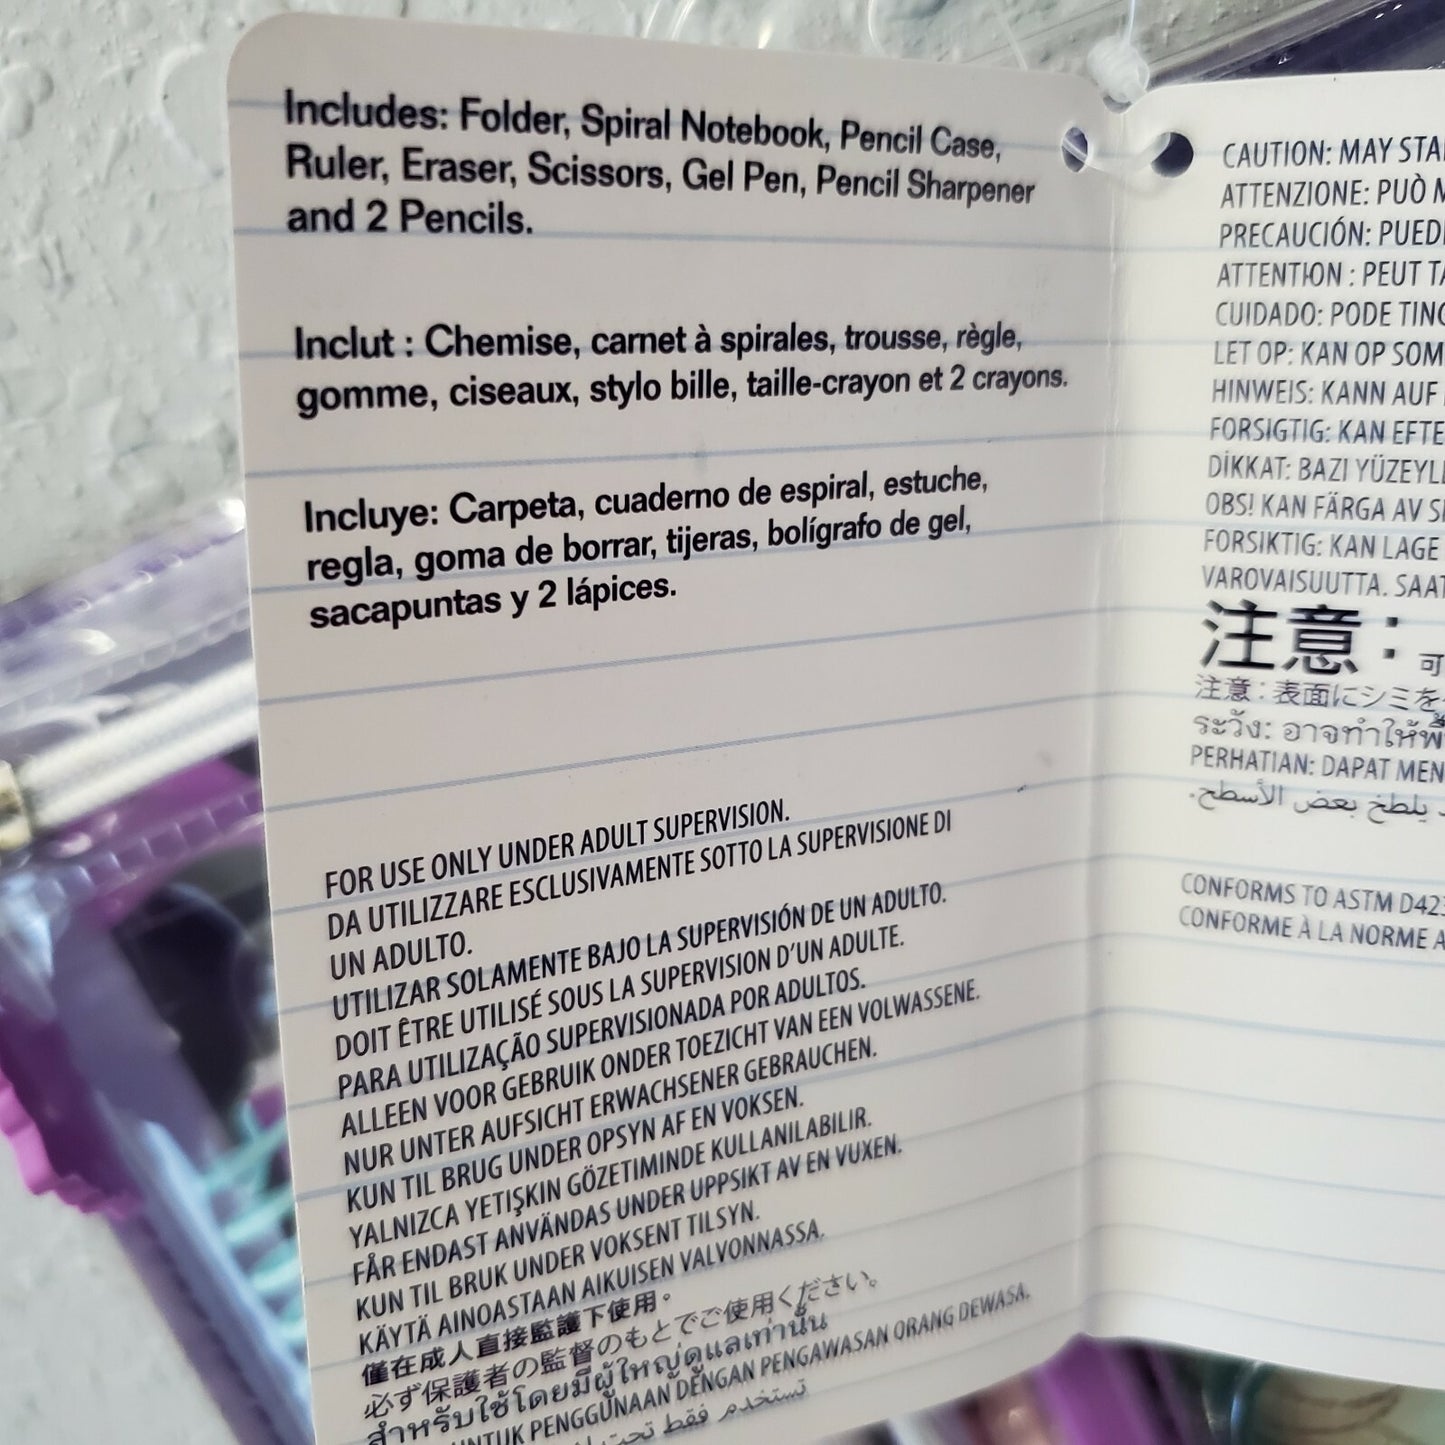 Includes: Folder, Spiral Notebook, Pencil Case,
Ruler, Eraser, Scissors, Gel Pen, Pencil Sharpener
and 2 Pencils.
Inclut : Chemise, carnet à spirales, trousse, règle,
gomme, ciseaux, stylo bille, taille-crayon et 2 crayons.
Incluye: Carpeta, cuaderno de espiral, estuche,
regla, goma de borrar, tijeras, bolígrafo de gel,
sacapuntas y 2 lápices.
FOR USE ONLY UNDER ADULT SUPERVISION.
DA UTILIZZARE ESCLUSIVAMENTE SOTTO LA SUPERVISIONE DI
UN ADULTO.
UTILIZAR SOLAMENTE BAJO LA SUPERVISIÓN DE UN ADULTO.
DOIT ÊTRE UTILISÉ SOUS LA SUPERVISION D'UN ADULTE.
PARA UTILIZAÇÃO SUPERVISIONADA POR ADULTOS.
ALLEEN VOOR GEBRUIK ONDER TOEZICHT VAN EEN VOLWASSENE.
NUR UNTER AUFSICHT ERWACHSENER GEBRAUCHEN.
KUN TIL BRUG UNDER OPSYN AF EN VOKSEN.
YALNIZCA YETIŞKIN GÖZETIMINDE KULLANILABILIR.
FÅR ENDAST ANVÄNDAS UNDER UPPSIKT AV EN VUXEN.
KUN TIL BRUK UNDER VOKSENT TILSYN.
KÄYTÄ AINOASTAAN AIKUISEN VALVONNASSA.
僅在成人直接監護下使用。
必ず保護者の監督のもとでご使用ください。
สำหรับใช้โดยมีผู้ใหญ่ดูแลเท่านั้น
UNTUK PENGGUNAAN DENGAN PENGAWASAN ORANG DEWASA.
تستخدم فقط تحت
CAUTION: MAY STA
ATTENZIONE: PUÒ M
PRECAUCIÓN: PUED
ATTENTION : PEUT TA
CUIDADO: PODE TING
LET OP: KAN OP SOM
HINWEIS: KANN AUF
FORSIGTIG: KAN EFTE
DİKKAT: BAZI YÜZEYL
OBS! KAN FÄRGA AV S
FORSIKTIG: KAN LAGE
VAROVAISUUTTA. SAAT
注意：可
注意：表面にシミを
ระวัง: อาจทำให้พื้
PERHATIAN: DAPAT MEN
يلطخ بعض الأسطح.
CONFORMS TO ASTM D42
CONFORME À LA NORME A